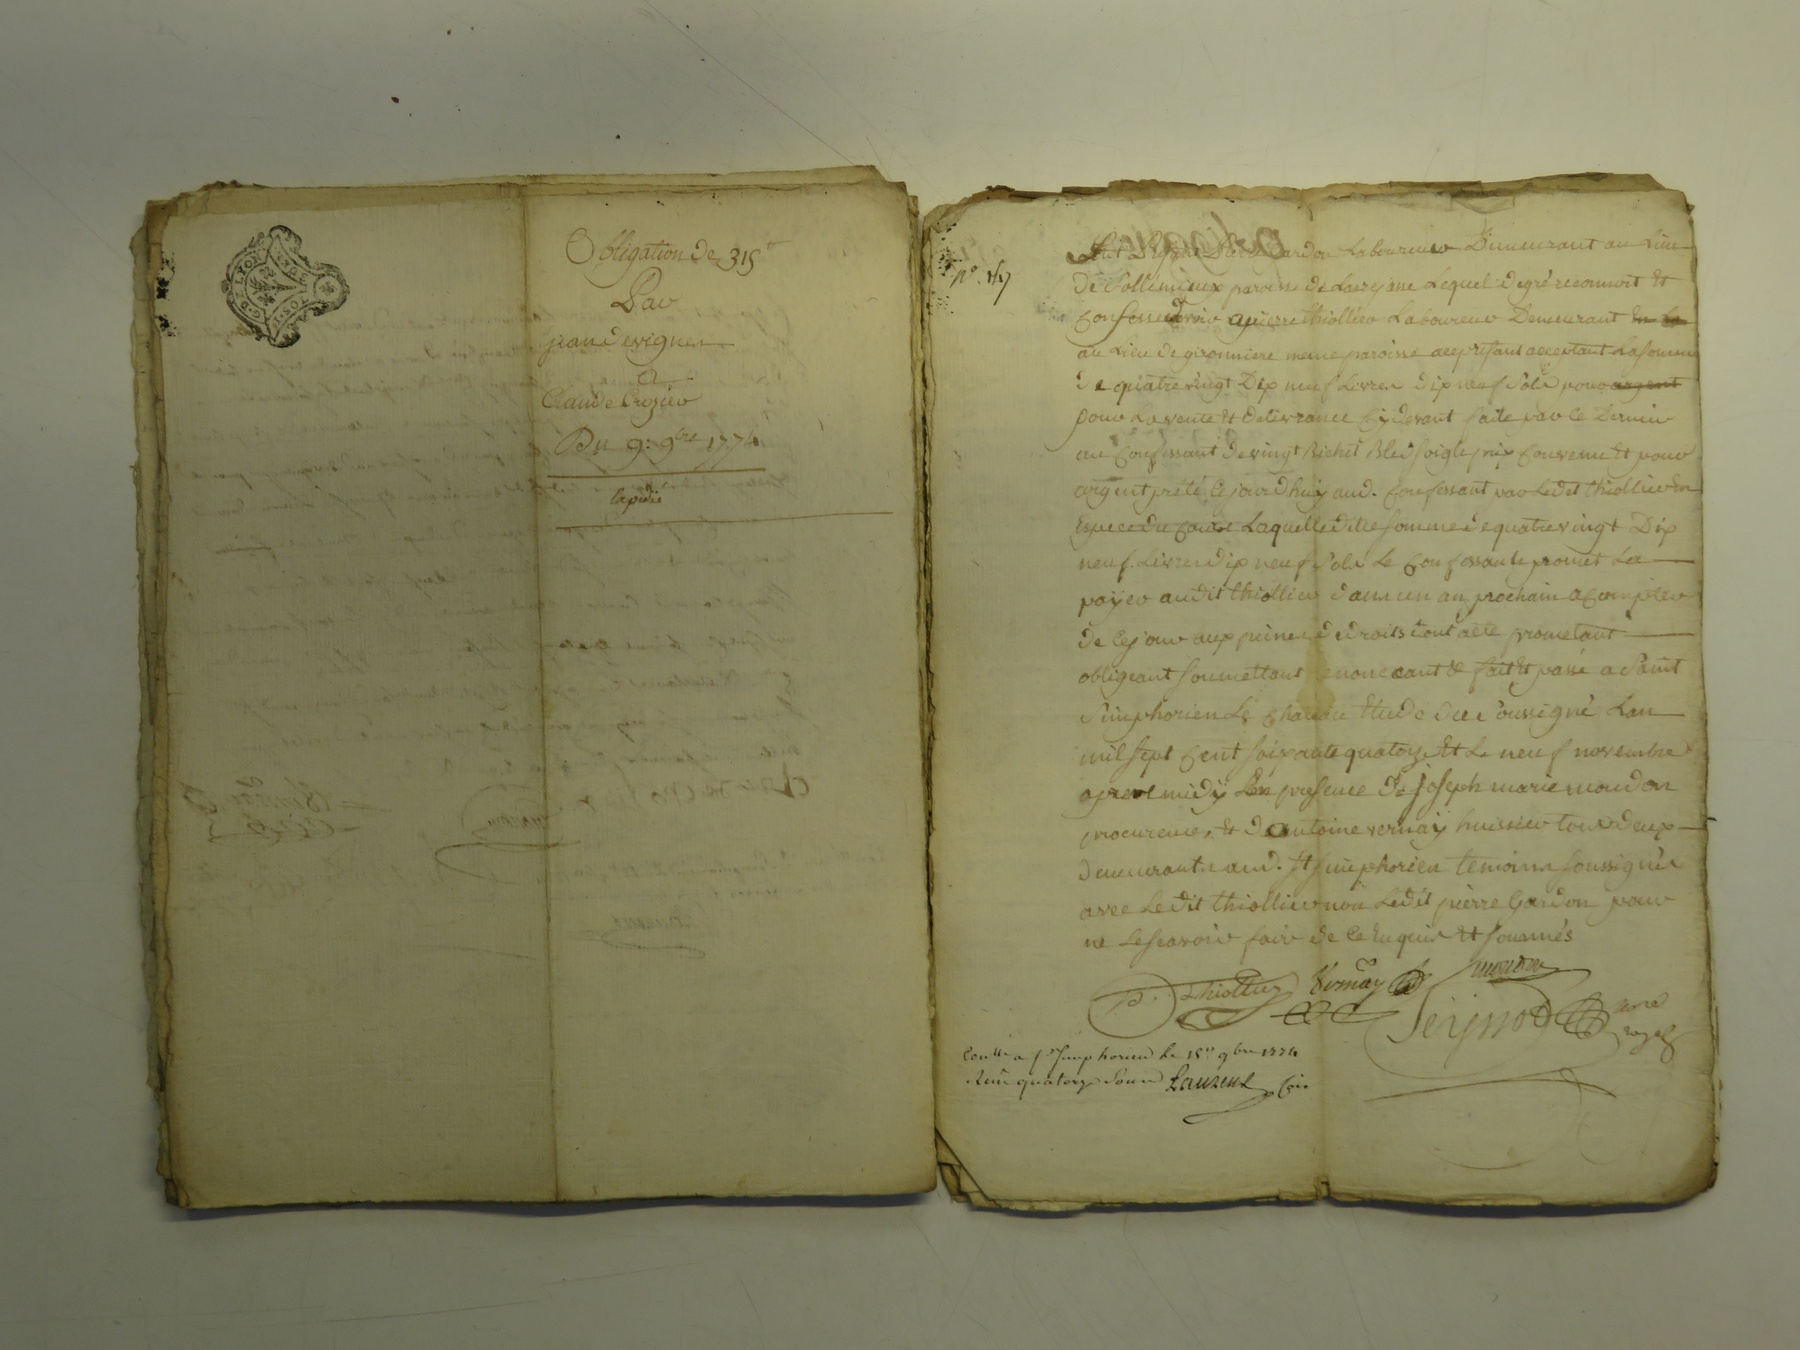 Obligation de 315 tt
Par
jean devigner
A
Claude Crozier
Du 9: 9bre 1774
Expedié
N° 147
Fut présent Pierre Gardon Laboureur Demeurant au Lieu
de Sollemieux paroisse de Larajasse Lequel degré reconnoit et
Confesse devoir a pierre thiollier Laboureur Demeurant
au Lieu de gironniere meme paroisse acy présant acceptant La somme
de quatrevingt Dix neuf Livres dix neuf sols pour argent
pour La vente et délivrance Cy devant faite par ce Dernier
au Confessant de vingt Bichet Bled soigle prix Convenu et pour
argent prété Cejourdhuy aud. Confessant par Ledit thiollier En
Espece du Cours Laquelle dite somme de quatrevingt Dix
neuf Livres dix neuf sols Le Confessant promet La
payer audit thiollier dans un an prochain a Compter
de Cejour aux peines de droits Cont acte prometant
obligeant soumettant renoncant &c fait et passé a Saint
Simphorien Le Chateau Etude du soussigné Lan
mil sept Cent soixante quatorze Et Le neuf novembre
apres midÿ En presence de joseph marie moudon
procureur, et d'antoine vernaÿ huissier tous deux
demeurants aud. St simphorien temoins soussignés
avec Le dit thiollier non Ledit pierre Gardon pour
ne Lesçavoir faire de Ce Enquis et sommés
P. thiollier Vernay moudon
Seignor
nore
royal
Conlle a St Simphorien le 15e 9bre 1774
Reçu quatorze sous Laurent